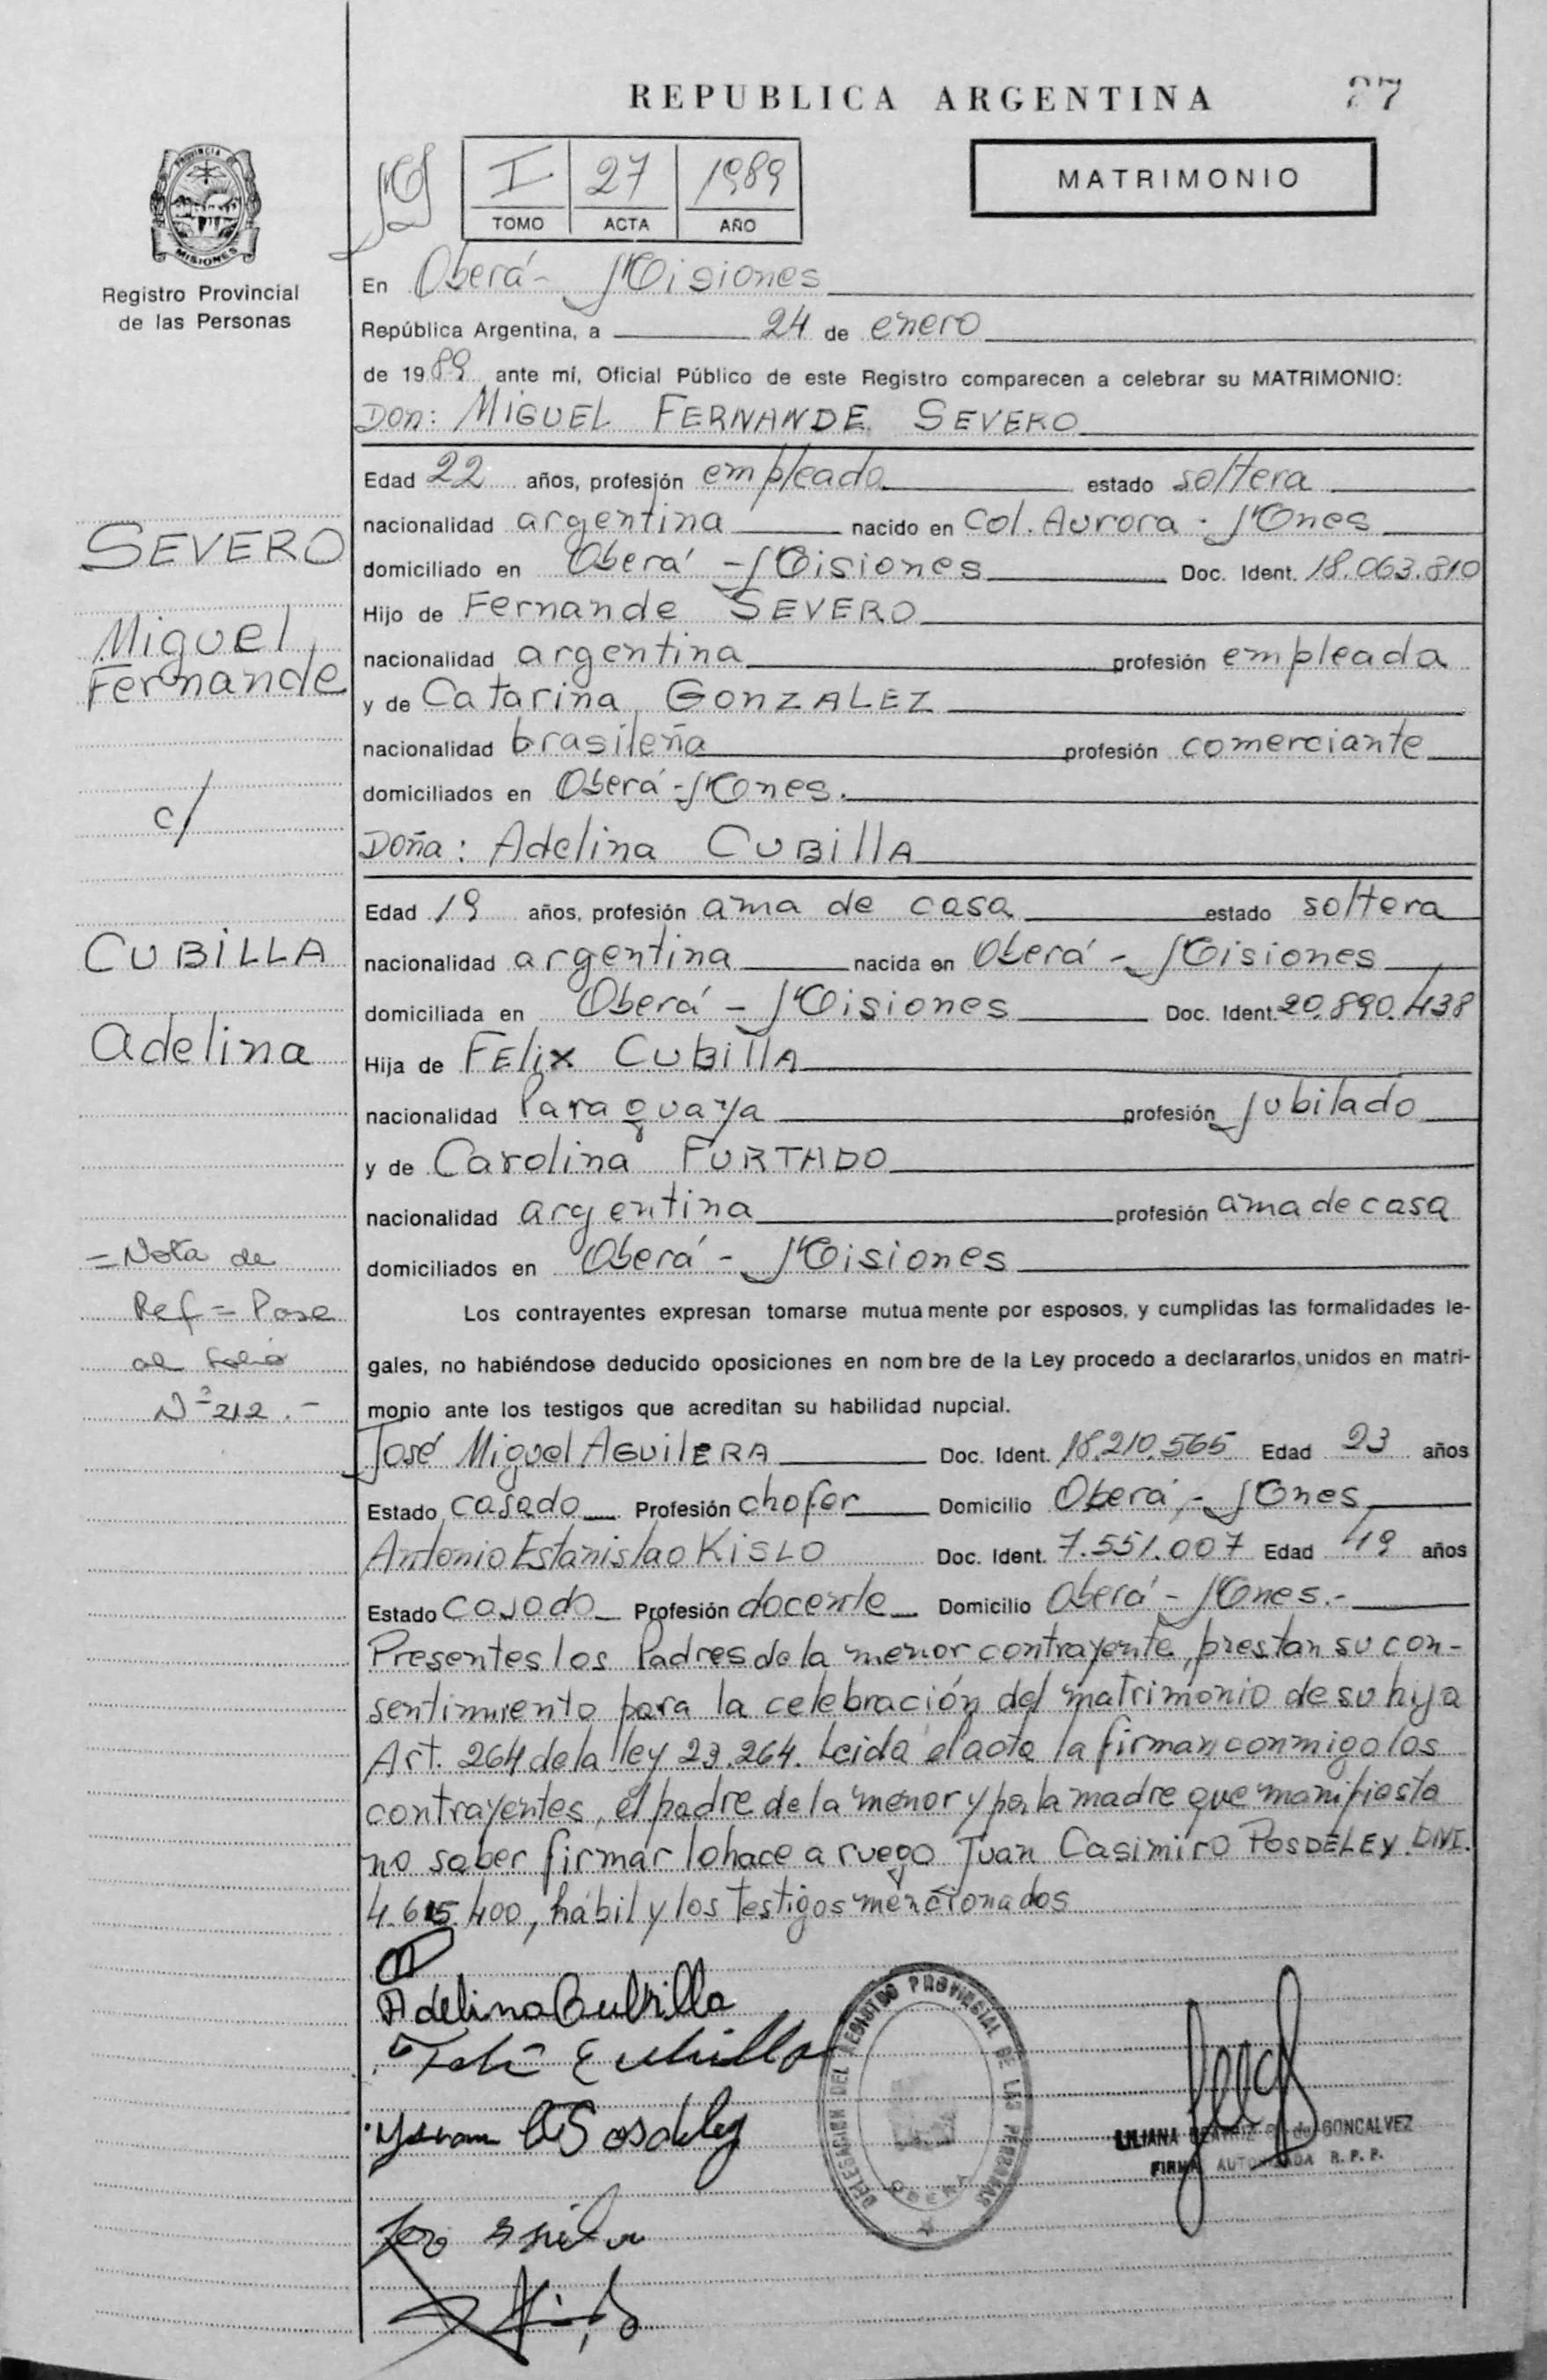 REPUBLICA ARGENTINA
27
PROVINCIA DE
MISIONES
Registro Provincial
de las Personas
I 27 1989
TOMO ACTA AÑO
MATRIMONIO
En Oberá - Misiones
República Argentina, a 24 de enero
de 1989 ante mí, Oficial Público de este Registro comparecen a celebrar su MATRIMONIO:
Don: MIGUEL FERNANDE SEVERO
Edad 22 años, profesión empleado estado soltera
nacionalidad argentina nacido en Col. Aurora - Mones
domiciliado en Oberá - Misiones Doc. Ident. 18.063.810
Hijo de Fernande SEVERO
nacionalidad argentina profesión empleada
y de Catarina GONZALEZ
nacionalidad brasileña profesión comerciante
domiciliados en Oberá - Mones.
Doña: Adelina CUBillA
Edad 19 años, profesión ama de casa estado soltera
nacionalidad argentina nacida en Oberá - Misiones
domiciliada en Oberá - Misiones Doc. Ident. 20.890.438
Hija de FEliX CUBillA
nacionalidad Paraguaya profesión jubilado
y de Carolina FURTADO
nacionalidad argentina profesión ama de casa
domiciliados en Oberá - Misiones
Los contrayentes expresan tomarse mutua mente por esposos, y cumplidas las formalidades le-
gales, no habiéndose deducido oposiciones en nom bre de la Ley procedo a declararlos unidos en matri-
monio ante los testigos que acreditan su habilidad nupcial.
José Miguel AGUILERA Doc. Ident. 18.210.565 Edad 23 años
Estado casado Profesión chofer Domicilio Oberá - Mones
Antonio Estanislao KISLO Doc. Ident. 7.551.007 Edad 49 años
Estado casado Profesión docente Domicilio Oberá - Mones.-
Presentes los Padres de la menor contrayente, prestan su con-
sentimiento para la celebración del matrimonio de su hija
Art. 264 de la ley 23.264. Leida el acta la firman conmigo los
contrayentes, el padre de la menor y por la madre que manifiesta
no saber firmar lo hace a ruego Juan Casimiro POSDELEY. DNI.
4.615.400, hábil y los testigos mencionados
SEVERO
Miguel
Fernande
c/
CUBILLA
Adelina
= Nota de
Ref = Pase
al folio
Nº 212.-
Adelina Cubilla
DELEGACION DEL REGISTRO PROVINCIAL DE LAS PERSONAS
OBERA
LILIANA BEATRIZ de GONCALVEZ
FIRMA AUTORIZADA R. P. P.